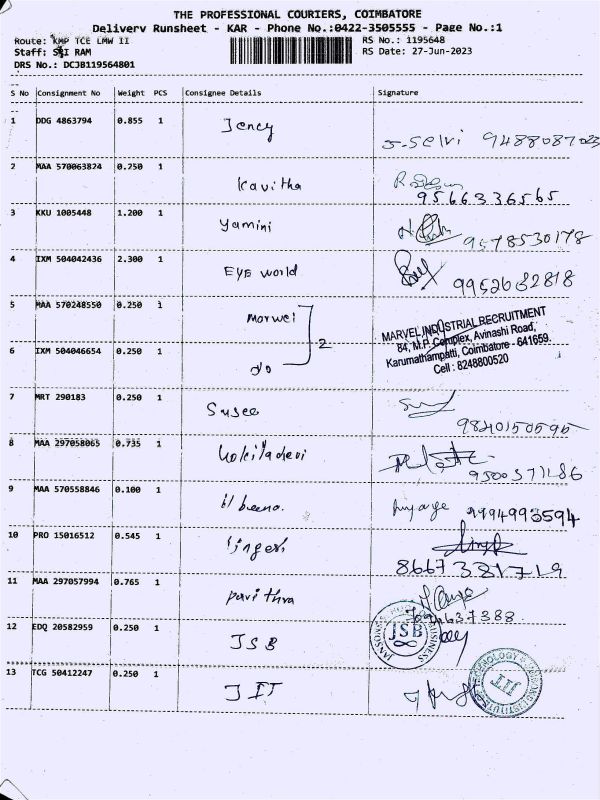 THE PROFESSIONAL COURIERS, COIMBATORE
Delivery Runsheet - KAR - Phone No.:0422-3505555 - Page No.:1
Route: KMP TCE LMW II
RS No.: 1195648
Staff: SRI RAM
RS Date: 27-Jun-2023
DRS No.: DCJB119564801
S No Consignment No Weight PCS Consignee Details Signature
1 DDG 4863794 0.855 1 Jency J-Selvi 9488087023
2 MAA 570063824 0.250 1 Kavitha 9566336565
3 KKU 1005448 1.200 1 Yamini 9578530178
4 IXM 504042436 2.300 1 EYE world 9952682818
5 MAA 570248550 0.250 1 Marvel 2
MARVEL INDUSTRIAL RECRUITMENT
84, M.P. Complex, Avinashi Road,
Karumathampatti, Coimbatore - 641659.
Cell : 8248800520
6 IXM 504046654 0.250 1 do
7 MRT 290183 0.250 1 Susee 9840150595
8 MAA 297058065 0.735 1 Kokiladevi 9500371186
9 MAA 570558846 0.100 1 9994993594
10 PRO 15016512 0.545 1 8667381719
11 MAA 297057994 0.765 1 pavithra
12 EDQ 20582959 0.250 1 JSB
JSB
13 TCG 50412247 0.250 1 JIT
JIT